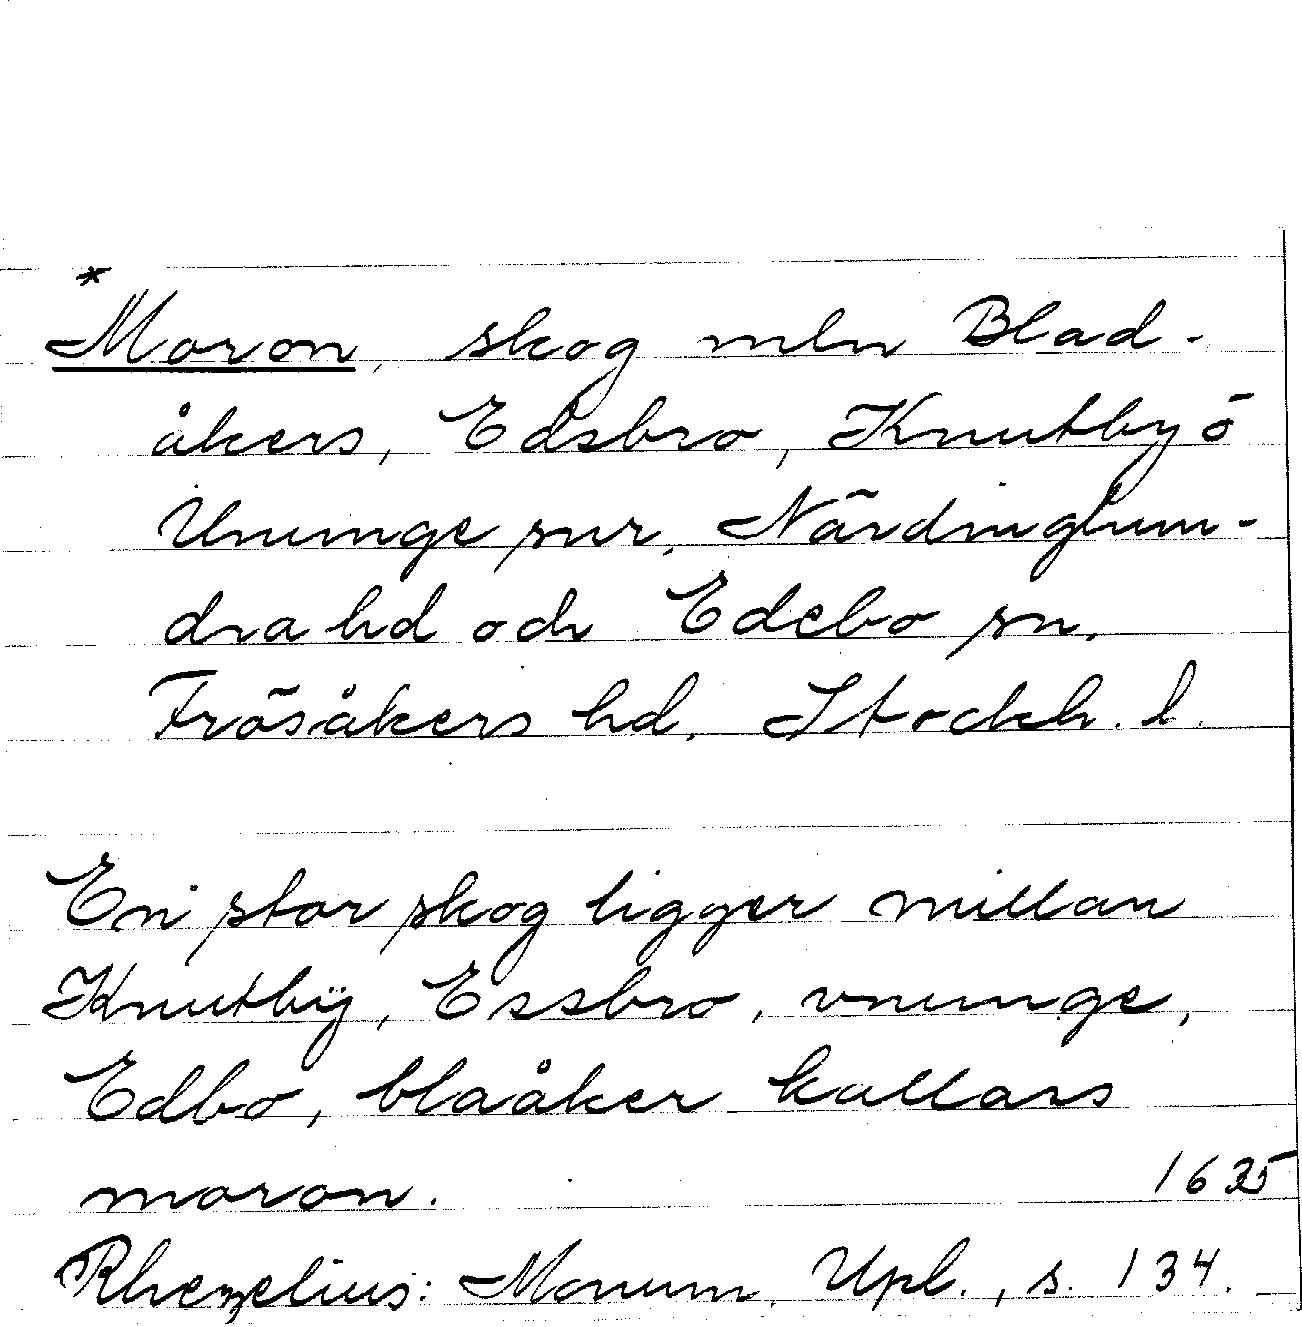 *Moron, skog mln Blad-
åkers, Edsbro, Knutby o
Ununge snr, Närdinghun-
dra hd och Edebo sn,
Frösåkers hd, Stockh. l.
En stor skog ligger millan
Knutbÿ, Essbro, vnunge,
Edbo, blaåker kallars
moron. 1635
Rhezelius: Monum. Upl., s. 134.